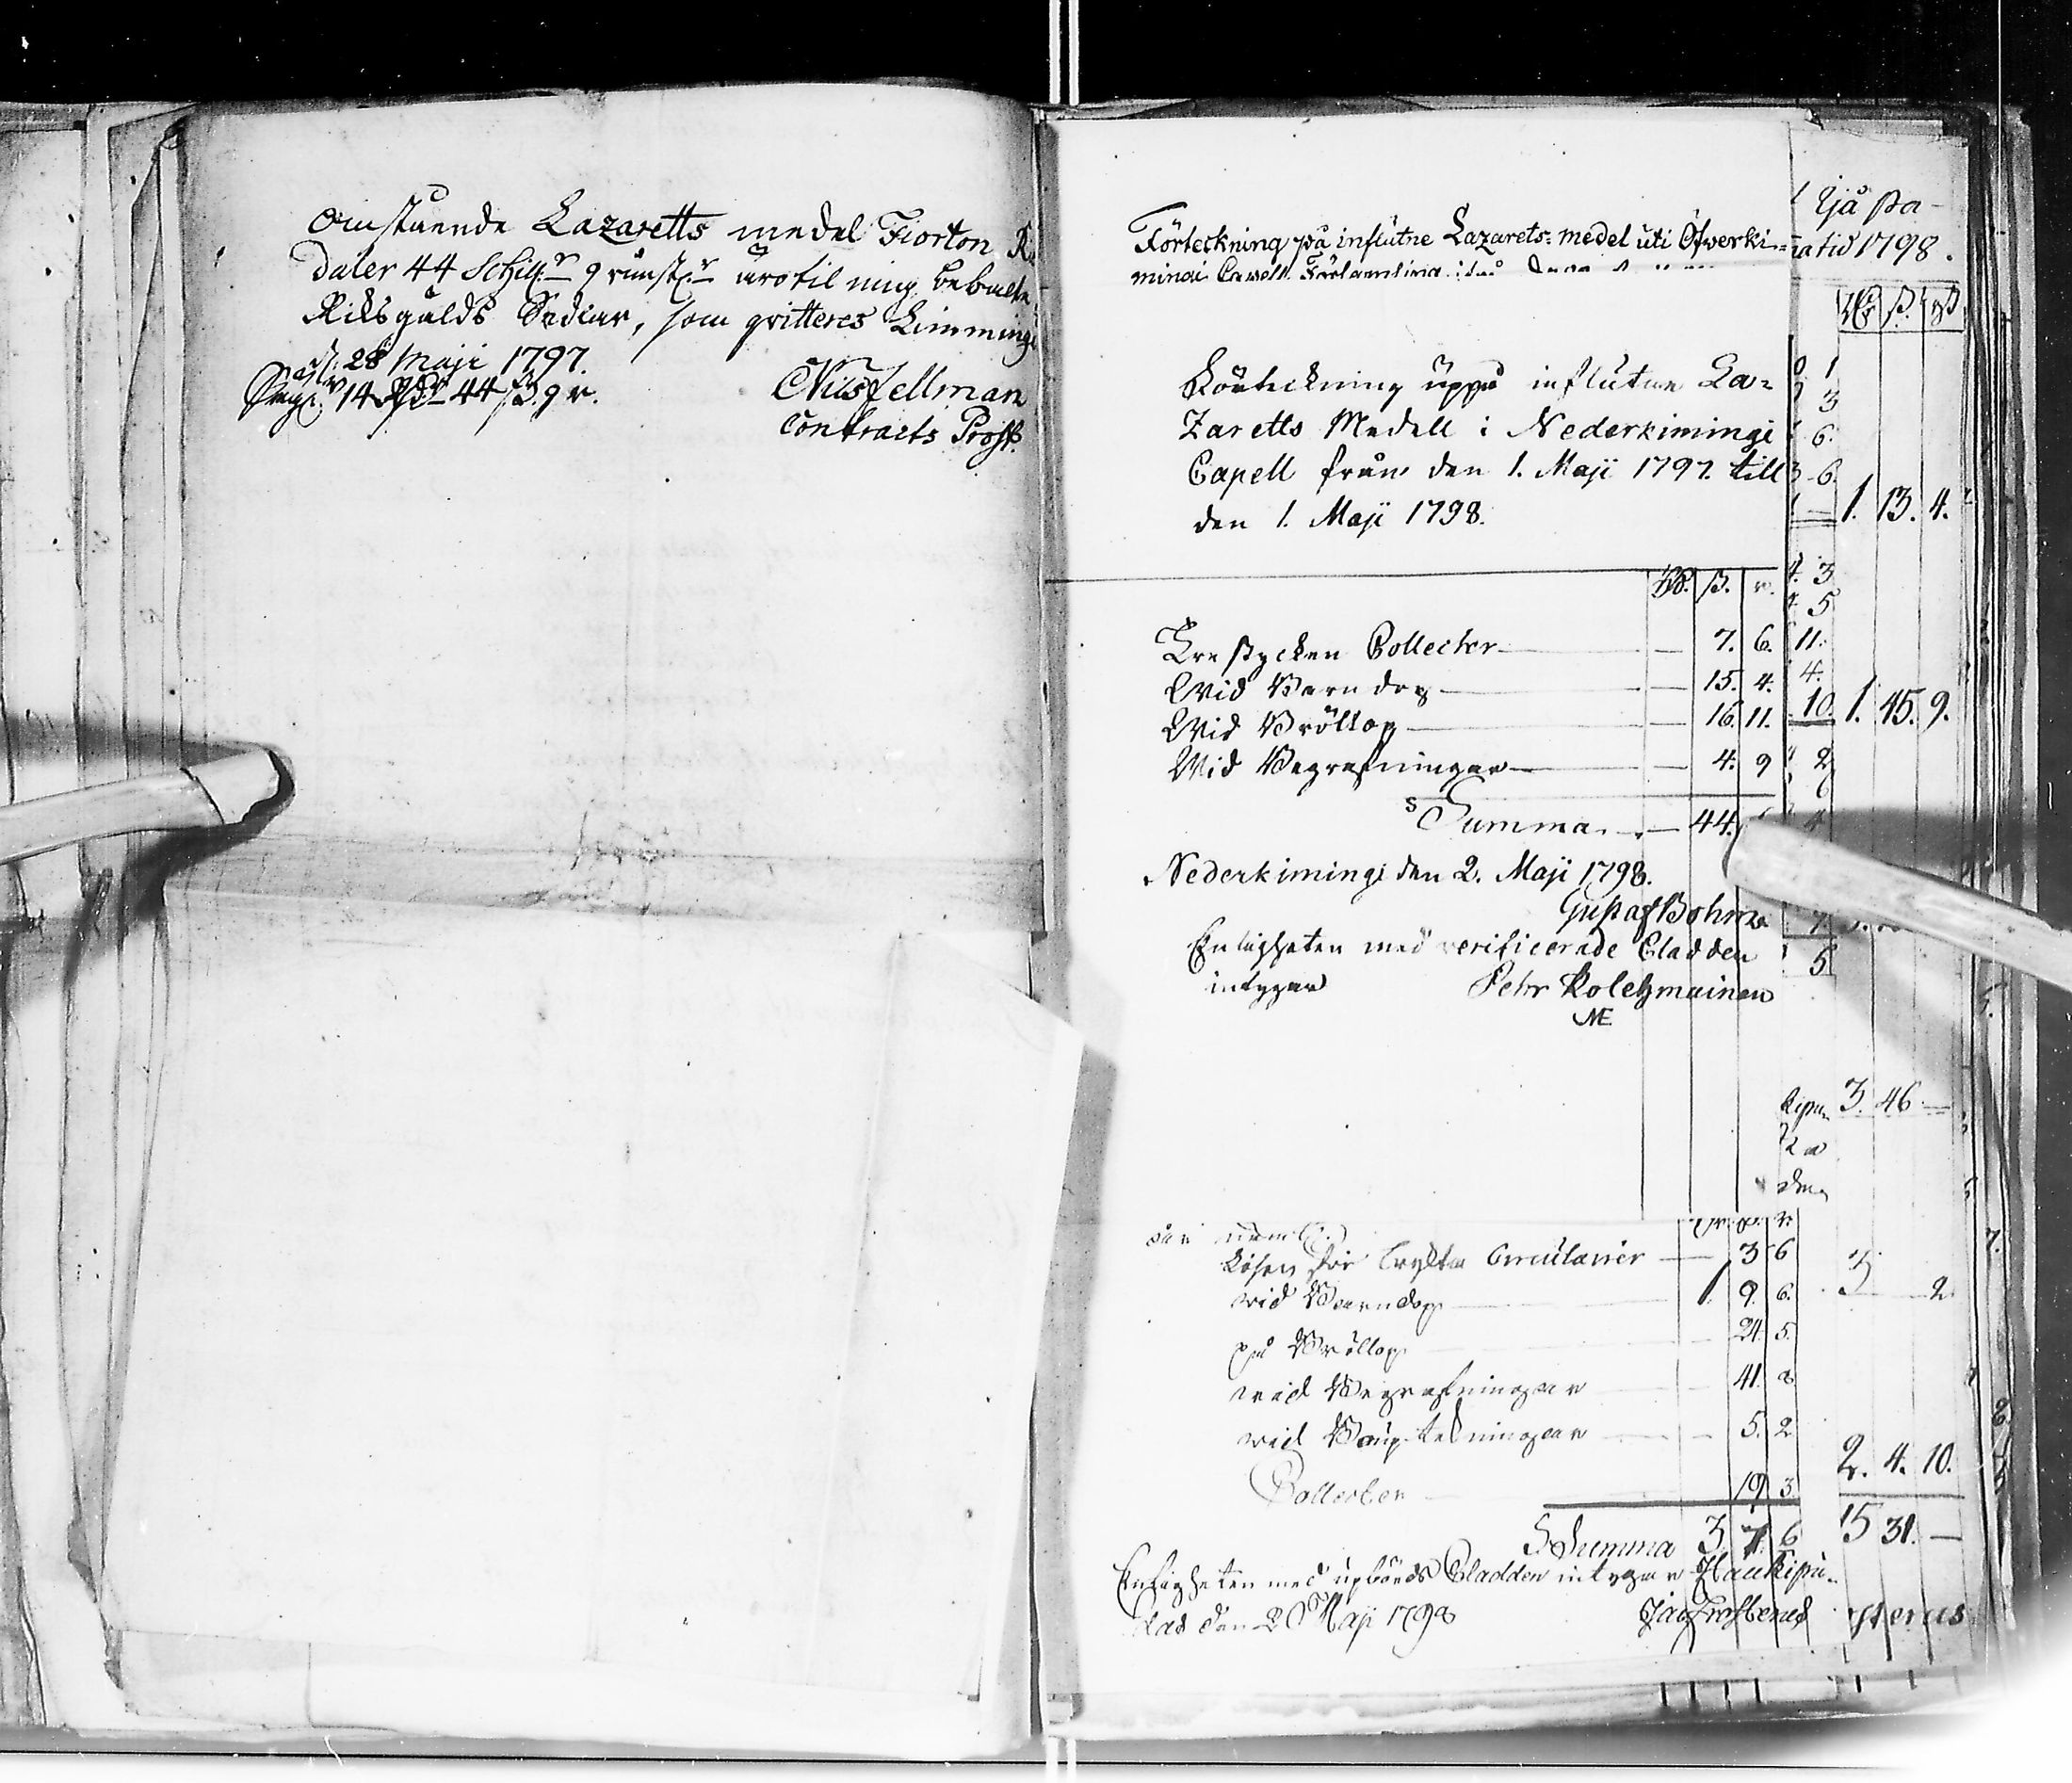 Omstående Lazaretts medel Fiorton R
daler 44 Schill:r 9 runst:r äro til mig betalte
Riksgälds Sedlar, som qvitteres Limmingo
d. 28 Maji 1797.
14 Rd 44 ß. 9 r.
Nils Fellman
Contracts Prost.
Förteckning på influtne Lazarets-medel uti Öfverki-
mingi Capell Församling
Förteckning uppå influtne La-
zaretts Medell i Nederkimingi
Capell från den 1. Maji 1797. till
den 1. Maji 1798.
Rd. ß. r.
Tre stycken Collecter — 7. 6.
Wid Barndop — 15. 4.
Wid Bröllop — 16. 11.
Wid Begrafningar — 4. 9
Summa — 44.
Nederkimingi den 2. Maji 1798.
Gustaf Bohm
Enligheten med verificerade Cladden
intygar Petr Kolehmainen
löhen för tryckta Circulairer — 3 6
vid Barndop 1. 9. 6.
på Bröllop 21. 5.
vid Begrafningar 41. 8
vid 5. 2
Collecter 19 3.
Summa 3. 7. 6
Enligheten med upbörds Cladden intygar Haukipu-
das den 2 Maji 1798 Jac Frosterus
tid 1798.
Rd ß
1
3
6.
6.
1. 13. 4.
3
5
11.
4.
10. 1. 45. 9.
2
6
5
kipu- 3. 46 —
3 2
2. 4. 10.
15 31. —
sterus